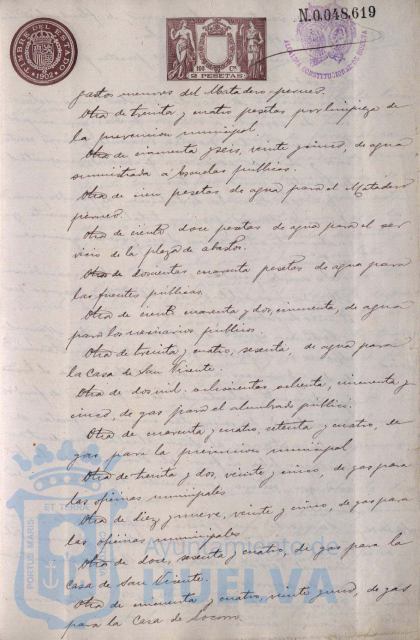 TIMBRE DEL ESTADO
1902
2 PESETAS
N.0.048,619
ALCALDIA CONSTITUCIONAL DE HUELVA
gastos menores del Matadero
Otra de treinta y cuatro pesetas por limpieza de
la prevencion municipal.
Otra de cincuenta y seis, veinte y cinco, de agua
suministrada á Escuelas públicas.
Otra de cien pesetas de agua para el Matadero
público.
Otra de ciento doce pesetas de agua para el ser
vicio de la plaza de abastos.
Otra de doscientas cuarenta pesetas de agua para
las fuentes públicas.
Otra de ciento cuarenta y dos, cincuenta, de agua
para los urinarios públicos.
Otra de treinta y cuatro, sesenta, de agua para
la Casa de San Vicente.
Otra de dos mil ochocientas ochenta, cincuenta y
cinco, de gas para el alumbrado público.
Otra de cuarenta y cuatro, setenta y cuatro, de
gas para la prevencion municipal
Otra de treinta y dos, veinte y cinco, de gas para
las oficinas municipales
Otra de diez y nueve, veinte y cinco, de gas para
las oficinas municipales
Otra de doce, sesenta y cuatro, de gas para la
casa de San Vicente.
Otra de cincuenta y cuatro, veinte y cinco, de gas
para la Casa de Socorro.
PORTUS MARIS
ET TERRA
Ayuntamiento de
HUELVA